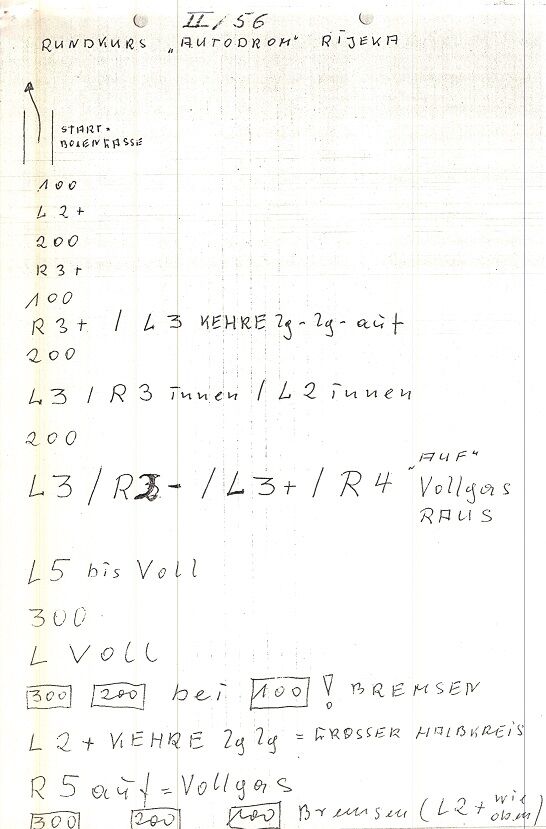 II/56
RUNDKURS „AUTODROM“ RIJEKA
START-
BOXENGASSE
100
L 2+
200
R 3+
100
R 3+ / L 3 KEHRE 2g-2g-auf
200
L 3 / R 3 innen / L 2 innen
200
L 3 / R 3- / L 3+ / R 4 „AUF“
Vollgas
RAUS
L5 bis Voll
300
L VOLL
300 200 bei 100 ! BREMSEN
L 2+ KEHRE 2g 2g = GROSSER HALBKREIS
R 5 auf = Vollgas
300 200 100 Bremsen (L2+ wie oben)